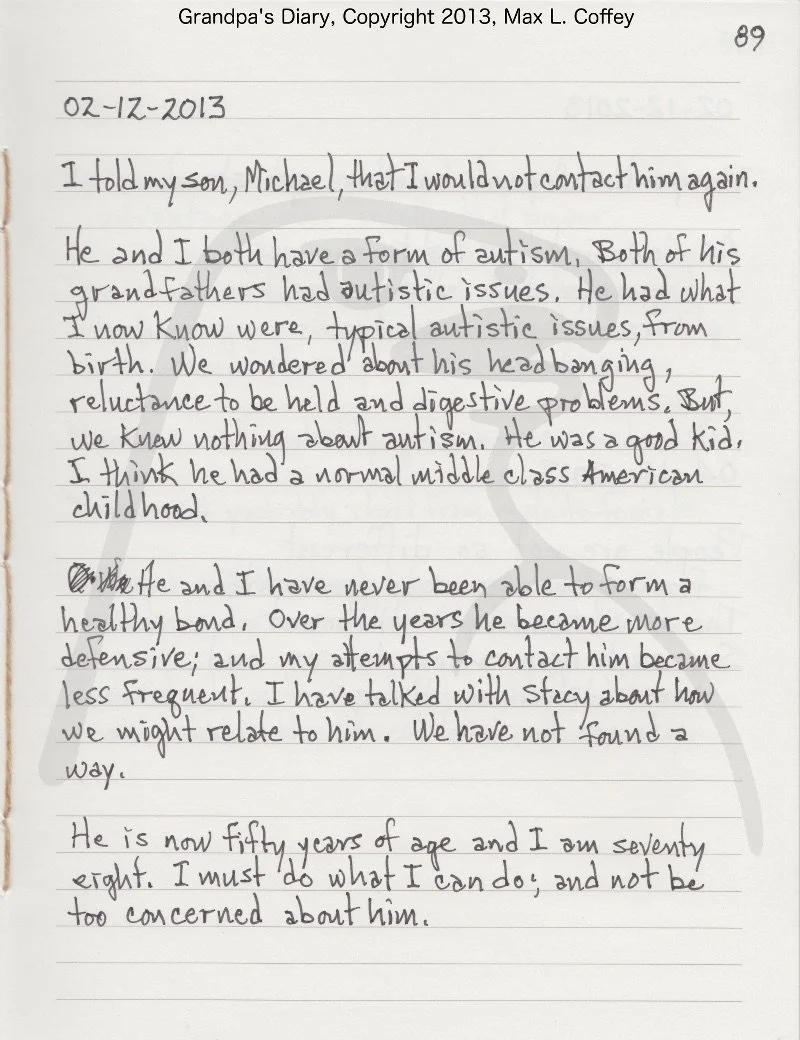 Grandpa's Diary, Copyright 2013, Max L. Coffey
89
02-12-2013
I told my son, Michael, that I would not contact him again.
He and I both have a form of autism. Both of his
grandfathers had autistic issues. He had what
I now know were, typical autistic issues, from
birth. We wondered about his head banging,
reluctance to be held and digestive problems. But,
we knew nothing about autism. He was a good kid.
I think he had a normal middle class American
childhood.
He and I have never been able to form a
healthy bond. Over the years he became more
defensive; and my attempts to contact him became
less frequent. I have talked with Stacy about how
we might relate to him. We have not found a
way.
He is now fifty years of age and I am seventy
eight. I must do what I can do; and not be
too concerned about him.